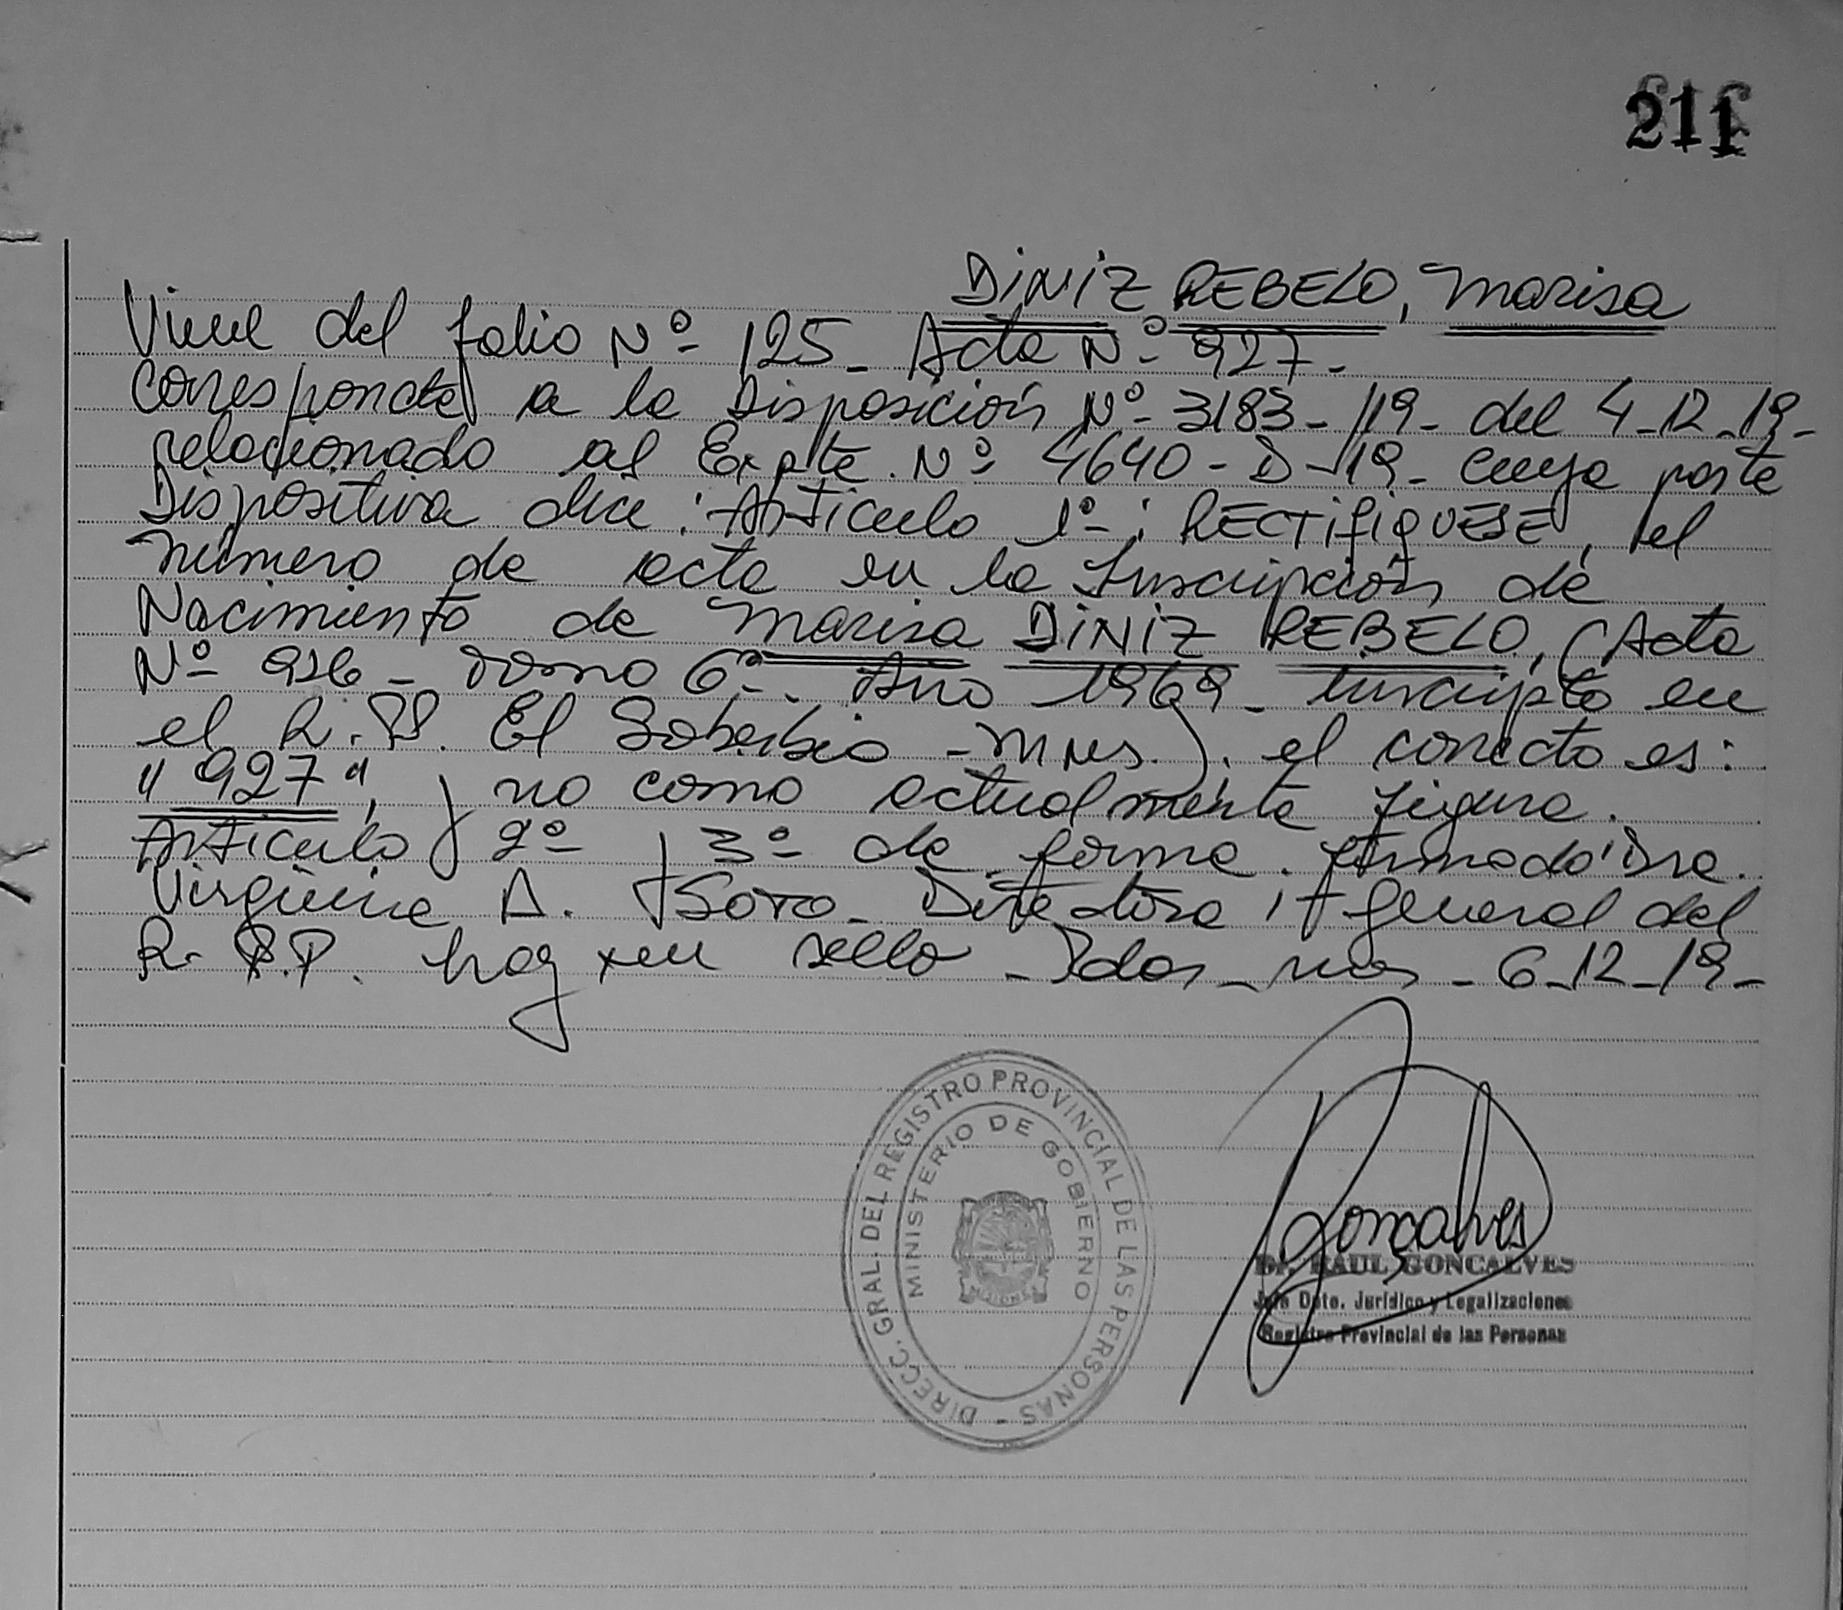 211
DINIZ REBELO, Marisa
Viene del folio Nº 125 - Acta Nº 927 -
Corresponde a la Disposición Nº 3183 - /19 - del 4-12-19 -
relacionado al Expte. Nº 4640 - D - 19 - cuya parte
Dispositiva dice: Artículo 1º: RECTIFIQUESE, el
número de acta en la Inscripción de
Nacimiento de Marisa DINIZ REBELO, (Acta
Nº 926 - Tomo 6º - Año 1969 - inscripto en
el R.P.P. El Soberbio - Mnes.). el correcto es:
"927", y no como actualmente figura.
Artículo 2º y 3º de forma. firmado: Dra.
Virginia A. Soto - Directora General del
R.P.P. hay un sello - Pdas - Mnes - 6-12-19 -
DIRECC. GRAL. DEL REGISTRO PROVINCIAL DE LAS PERSONAS -
MINISTERIO DE GOBIERNO
MISIONES
Gonçalves
Dr. RAUL GONCALVES
Jefe Dpto. Jurídico y Legalizaciones
Registro Provincial de las Personas